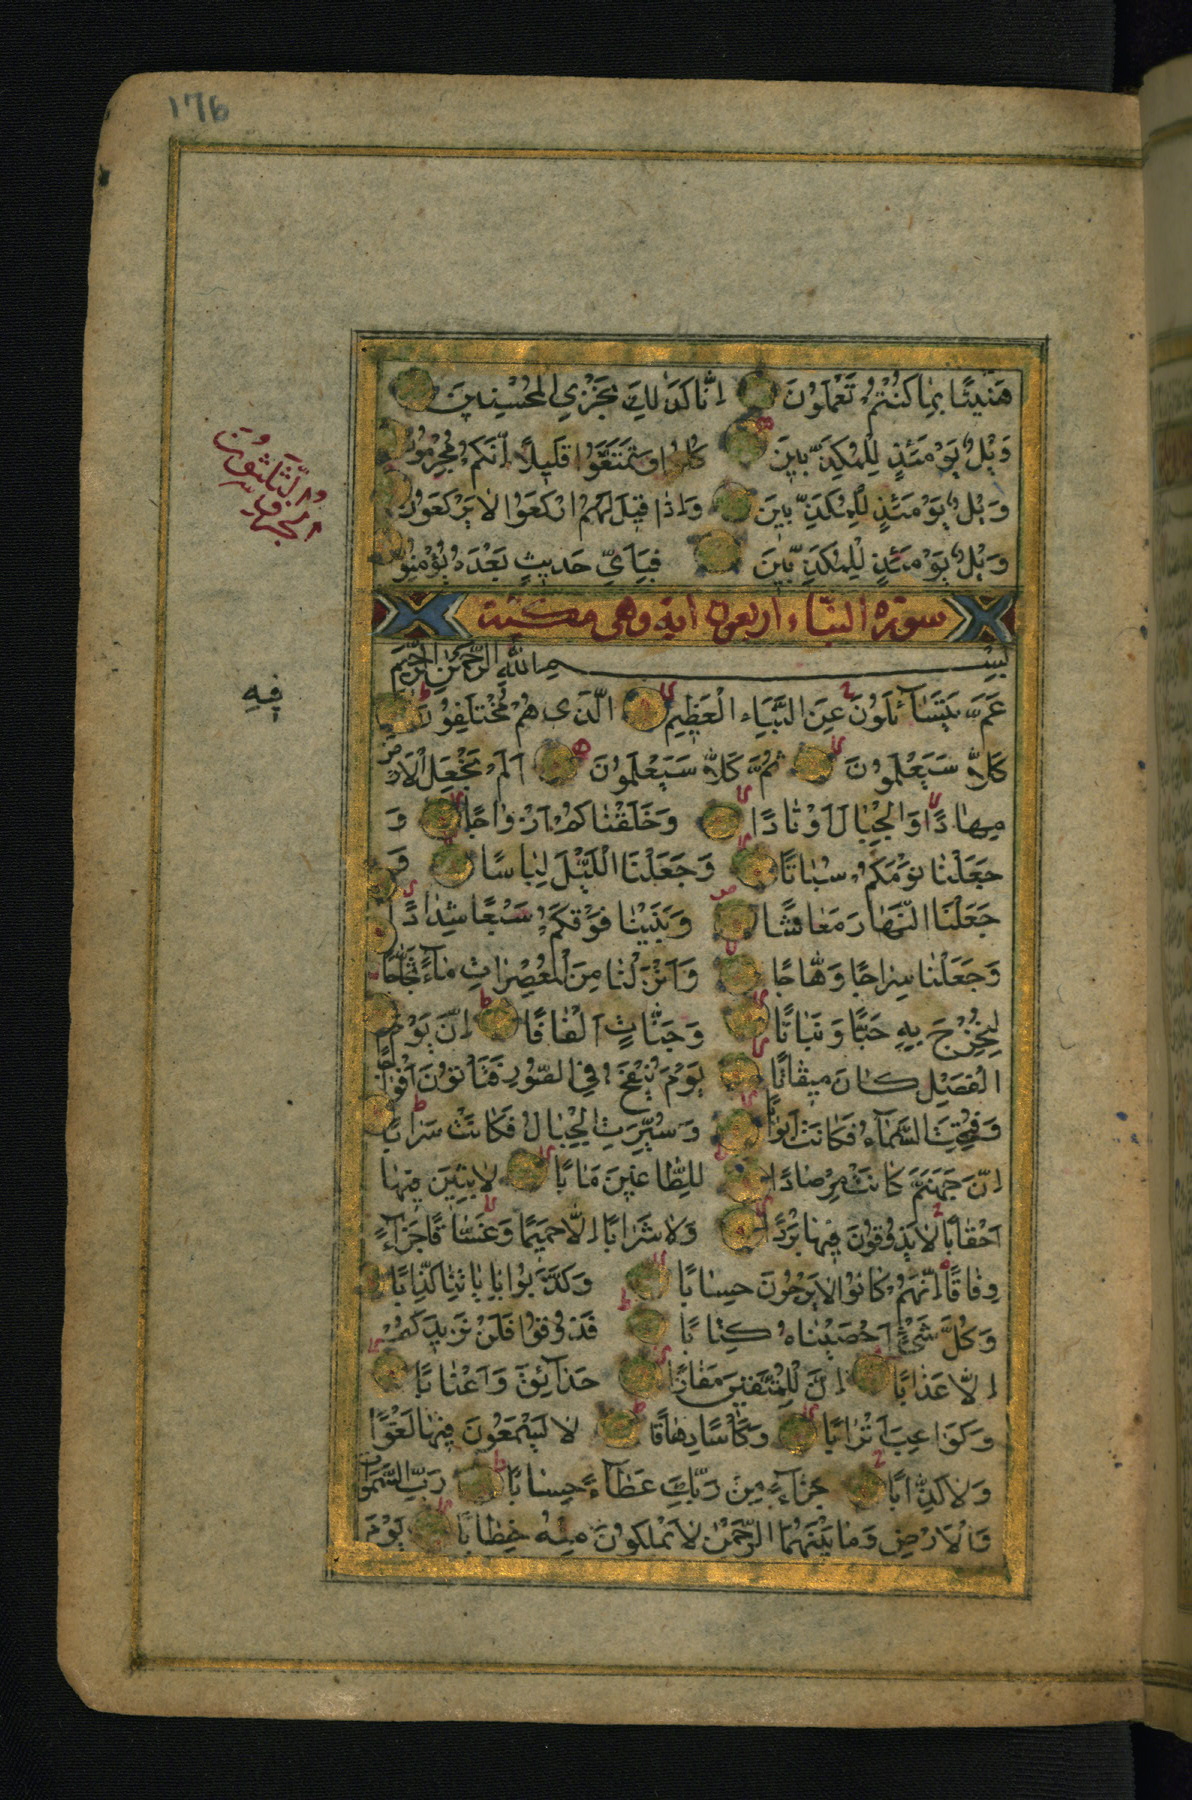 176
هَنِيئًا بِمَا كُنْتُمْ تَعْمَلُونَ اِنَّا كَذٰلِكَ نَجْزِي الْمُحْسِنِينَ
وَيْلٌ يَوْمَئِذٍ لِلْمُكَذِّبِينَ كُلُوا وَتَمَتَّعُوا قَلِيلًا اِنَّكُمْ مُجْرِمُونَ
وَيْلٌ يَوْمَئِذٍ لِلْمُكَذِّبِينَ وَاِذَا قِيلَ لَهُمُ ارْكَعُوا لَا يَرْكَعُونَ
وَيْلٌ يَوْمَئِذٍ لِلْمُكَذِّبِينَ فَبِاَيِّ حَدِيثٍ بَعْدَهُ يُؤْمِنُونَ
الجزو الثلثون
سورة النبأ اربعون آية وهى مكية
بِسْمِ اللّٰهِ الرَّحْمٰنِ الرَّحِيمِ
فِيهِ
عَمَّ يَتَسَآئَلُونَ عَنِ النَّبَإِ الْعَظِيمِ الَّذِي هُمْ فِيهِ مُخْتَلِفُونَ
كَلَّا سَيَعْلَمُونَ ثُمَّ كَلَّا سَيَعْلَمُونَ اَلَمْ نَجْعَلِ الْاَرْضَ
مِهَادًا وَالْجِبَالَ اَوْتَادًا وَخَلَقْنَاكُمْ اَزْوَاجًا وَ
جَعَلْنَا نَوْمَكُمْ سُبَاتًا وَجَعَلْنَا اللَّيْلَ لِبَاسًا وَ
جَعَلْنَا النَّهَارَ مَعَاشًا وَبَنَيْنَا فَوْقَكُمْ سَبْعًا شِدَادًا
وَجَعَلْنَا سِرَاجًا وَهَّاجًا وَاَنْزَلْنَا مِنَ الْمُعْصِرَاتِ مَآءً ثَجَّاجًا
لِنُخْرِجَ بِهِ حَبًّا وَنَبَاتًا وَجَنَّاتٍ اَلْفَافًا اِنَّ يَوْمَ
الْفَصْلِ كَانَ مِيقَاتًا يَوْمَ يُنْفَخُ فِي الصُّورِ فَتَأْتُونَ اَفْوَاجًا
وَفُتِحَتِ السَّمَآءُ فَكَانَتْ اَبْوَابًا وَسُيِّرَتِ الْجِبَالُ فَكَانَتْ سَرَابًا
اِنَّ جَهَنَّمَ كَانَتْ مِرْصَادًا لِلطَّاغِينَ مَاٰبًا لَابِثِينَ فِيهَا
اَحْقَابًا لَا يَذُوقُونَ فِيهَا بَرْدًا وَلَا شَرَابًا اِلَّا حَمِيمًا وَغَسَّاقًا جَزَآءً
وِفَاقًا اِنَّهُمْ كَانُوا لَا يَرْجُونَ حِسَابًا وَكَذَّبُوا بِاٰيَاتِنَا كِذَّابًا
وَكُلَّ شَيْءٍ اَحْصَيْنَاهُ كِتَابًا فَذُوقُوا فَلَنْ نَزِيدَكُمْ
اِلَّا عَذَابًا اِنَّ لِلْمُتَّقِينَ مَفَازًا حَدَآئِقَ وَاَعْنَابًا
وَكَوَاعِبَ اَتْرَابًا وَكَأْسًا دِهَاقًا لَا يَسْمَعُونَ فِيهَا لَغْوًا
وَلَا كِذَّابًا جَزَآءً مِنْ رَبِّكَ عَطَآءً حِسَابًا رَبِّ السَّمٰوَاتِ
وَالْاَرْضِ وَمَا بَيْنَهُمَا الرَّحْمٰنِ لَا يَمْلِكُونَ مِنْهُ خِطَابًا يَوْمَ